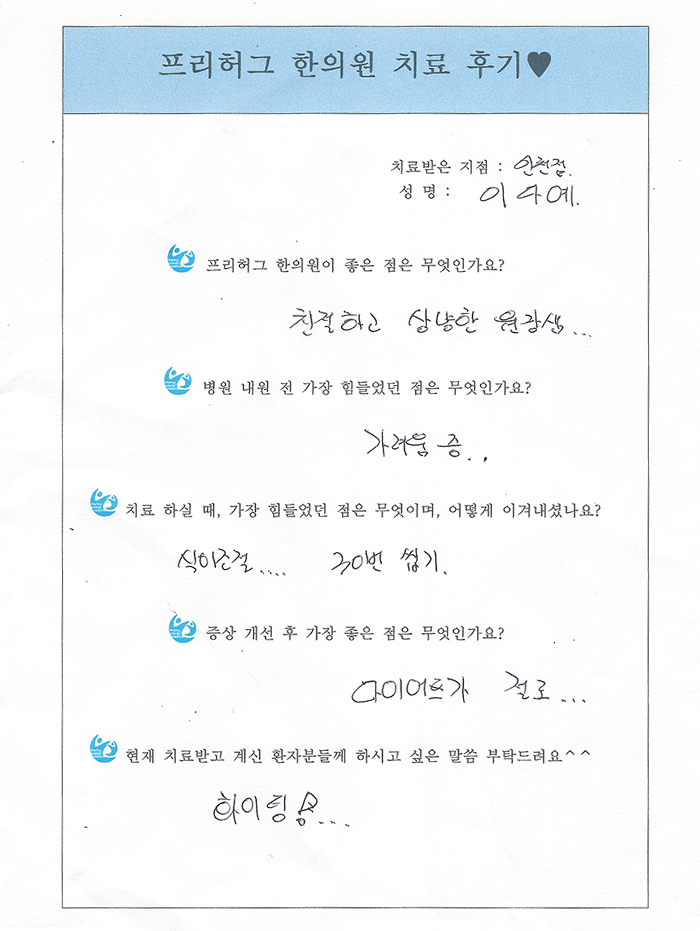 프리허그 한의원 치료 후기♥
치료받은 지점 : 인천점.
성 명 : 이 다예.
프리허그 한의원이 좋은 점은 무엇인가요?
친절하고 상냥한 원장샘...
병원 내원 전 가장 힘들었던 점은 무엇인가요?
가려움 증..
치료 하실 때, 가장 힘들었던 점은 무엇이며, 어떻게 이겨내셨나요?
식이조절.... 30번 씹기.
증상 개선 후 가장 좋은 점은 무엇인가요?
다이어트가 절로...
현재 치료받고 계신 환자분들께 하시고 싶은 말씀 부탁드려요^^
화이팅용...